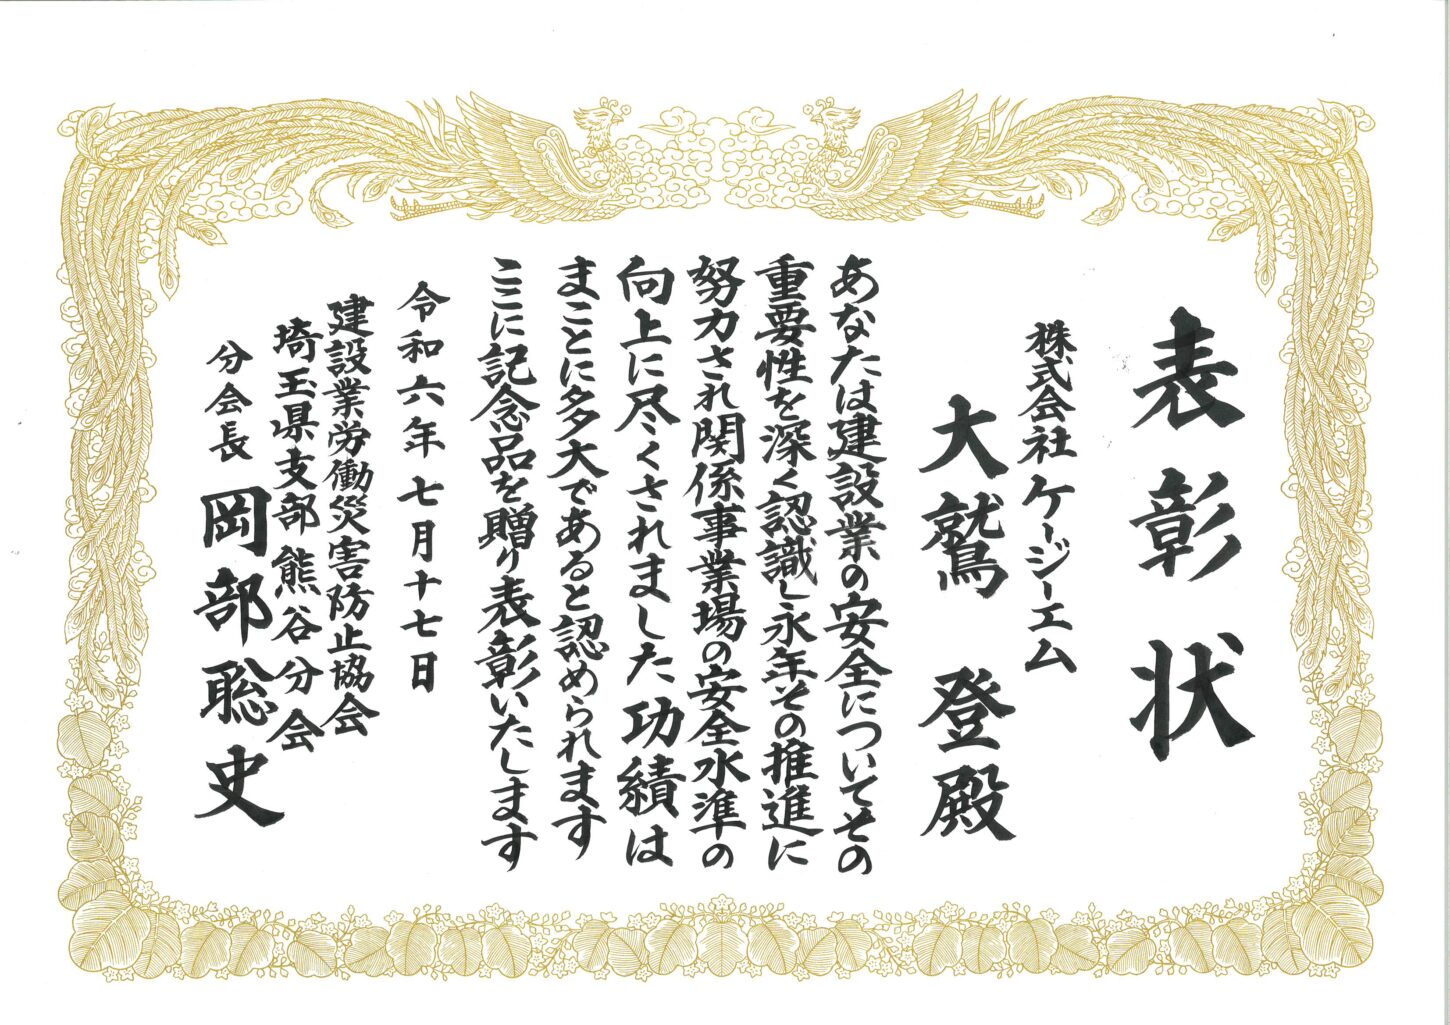 表彰状
株式会社ケージーエム
大鷲 登殿
あなたは建設業の安全についてその
重要性を深く認識し永年その推進に
努力され関係事業場の安全水準の
向上に尽くされました功績は
まことに多大であると認められます
ここに記念品を贈り表彰いたします
令和六年七月十七日
建設業労働災害防止協会
埼玉県支部熊谷分会
分会長 岡部聡史